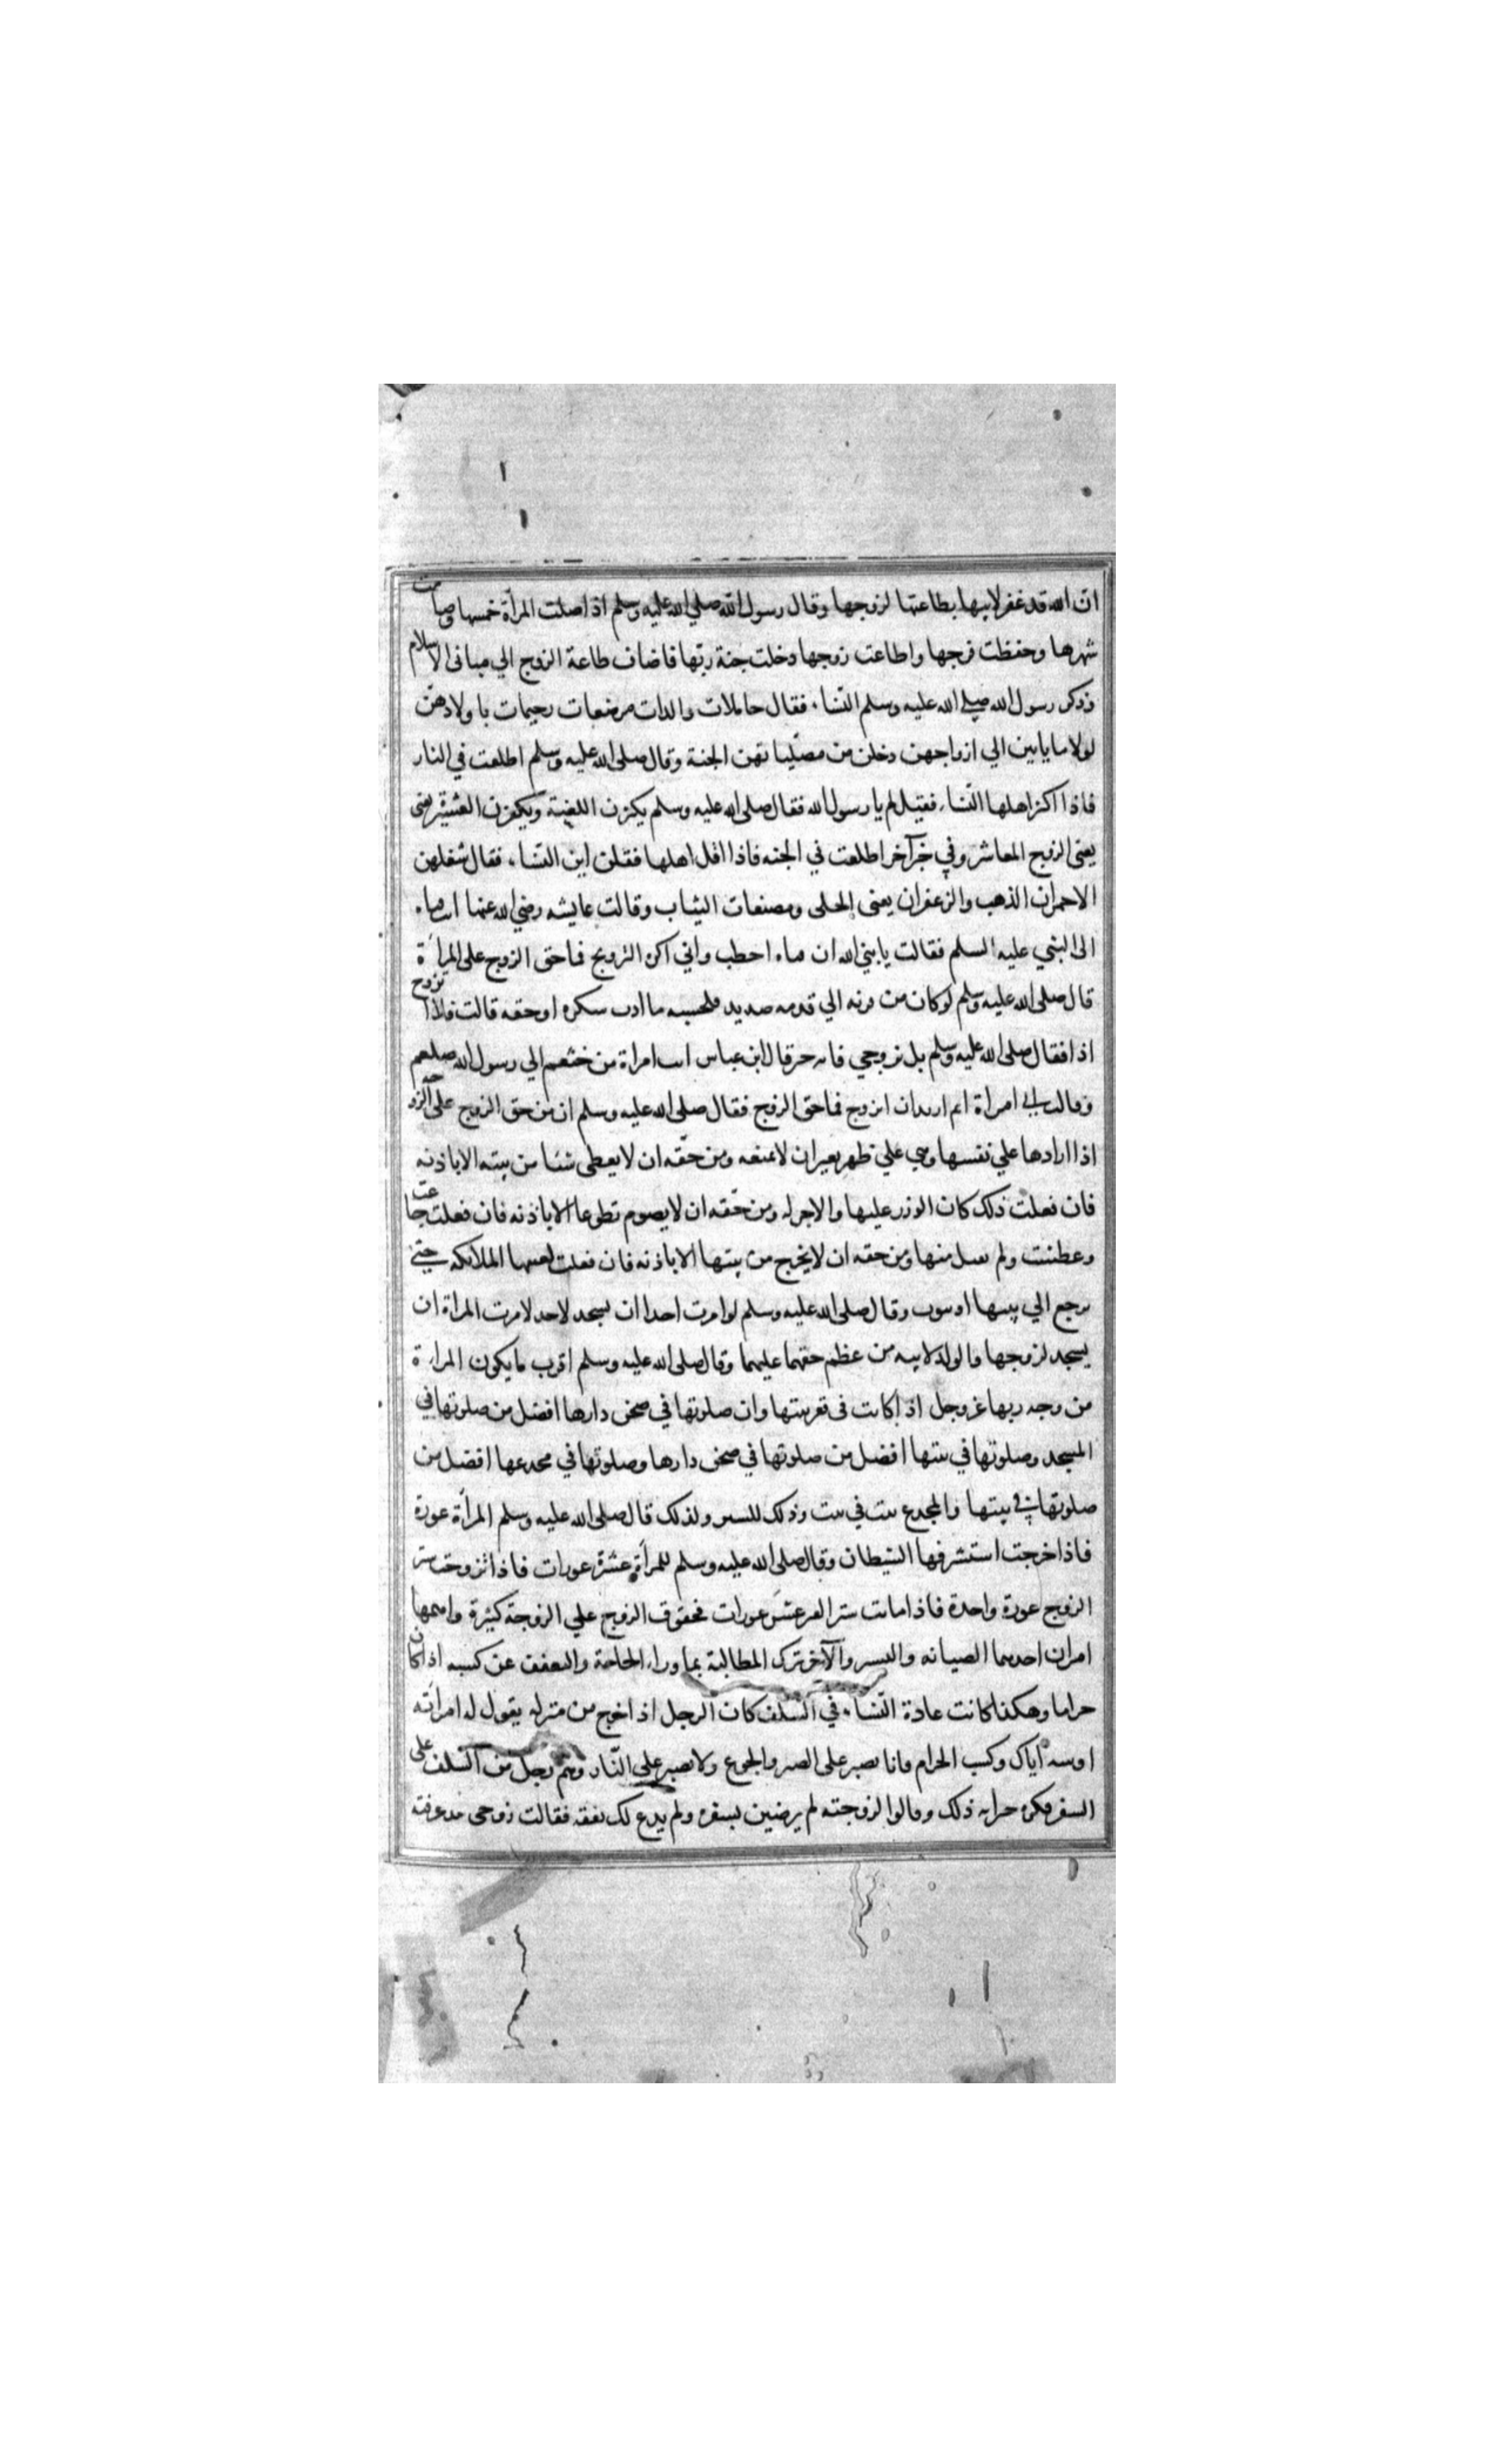 ان الله قد غفر لابيها بطاعتها لزوجها وقال رسول الله صلى الله عليه وسلم اذا صلت المرأة خمسها وصامت
شهرها وحفظت فرجها واطاعت زوجها دخلت جنة ربها فاضاف طاعة الزوج الي مباني الاسلام
وذكر رسول الله صلى الله عليه وسلم النساء فقال حاملات والدات مرضعات رحيمات باولادهن
لولا ما ياتين الي ازواجهن دخلن من مصلياتهن الجنة وقال صلى الله عليه وسلم اطلعت في النار
فاذا اكثر اهلها النساء فقيل لم يا رسول الله فقال صلى الله عليه وسلم يكثرن اللغنة ويكفرن العشيرة يعنى
يعنى الزوج المعاشر وفي خبر آخر اطلعت في الجنه فاذا اقل اهلها فقلت اين النساء فقال شغلهن
الاحمران الذهب والزعفران يعنى الحلى ومصنعات الثياب وقالت عايشه رضي الله عنها
الى النبي عليه السلم فقالت يا نبي الله ان احطب واني اكره التزويج فما حق الزوج على المرأة
قال صلى الله عليه وسلم لو كان من فرقه الي قدمه صديد فلحسته ما ادت سكره او حقه قالت فلا اتزوج
اذا فقال صلى الله عليه وسلم بل تزوجي فانه خير قال ابن عباس اتت امراة من خثعم الي رسول الله صلعم
وقالت اني امراة ايم اريد ان اتزوج فما حق الزوج فقال صلى الله عليه وسلم ان من حق الزوج على الزوجه
اذا ارادها علي نفسها وهي علي ظهر بعير ان لا تمنعه ومن حقه ان لا يعطى شئا من بيته الا باذنه
فان فعلت ذلك كان الوزر عليها والاجر له ومن حقه ان لا يصوم تطوعا الا باذنه فان فعلت جاعت
وعطشت ولم تقبل منها ومن حقه ان لا يخرج من بيتها الا باذنه فان فعلت لعنتها الملائكه حتى
ترجع الي بيتها او تتوب وقال صلى الله عليه وسلم لو امرت احدا ان يسجد لاحد لامرت المراة ان
يسجد لزوجها والولد لابيه من عظم حقهما عليهما وقال صلى الله عليه وسلم اقرب ما يكون المراءة
من وجه ربها عز وجل اذا كانت فى قعر بيتها وان صلوتها في صحن دارها افضل من صلوتها في
المسجد وصلوتها في بيتها افضل من صلوتها في صحن دارها وصلوتها في مخدعها افضل من
صلوتها في بيتها والمخدع بيت في بيت وذلك للستر ولذلك قال صلى الله عليه وسلم المرأة عورة
فاذا خرجت استشرفها الشيطان وقال صلى الله عليه وسلم للمرأة عشرة عورات فاذا تزوجت ستر
الزوج عورة واحدة فاذا ماتت ستر القبر عشر عورات فحقوق الزوج علي الزوجة كثيرة واهمها
امران احدهما الصيانه والستر والآخر ترك المطالبة بما وراء الحاجة والتعفف عن كسبه اذا كان
حراما وهكذا كانت عادة النساء في السلف كان الرجل اذا خرج من منزله يقول له امراته
او بنته اياك وكسب الحرام فانا نصبر على الضر والجوع ولا نصبر على النار وهم رجل من السلف على
السفر فكره جيرانه ذلك وقالوا لزوجته لم يرضين بسفره ولم يدع لك نفقه فقالت زوجى مذ عرفته